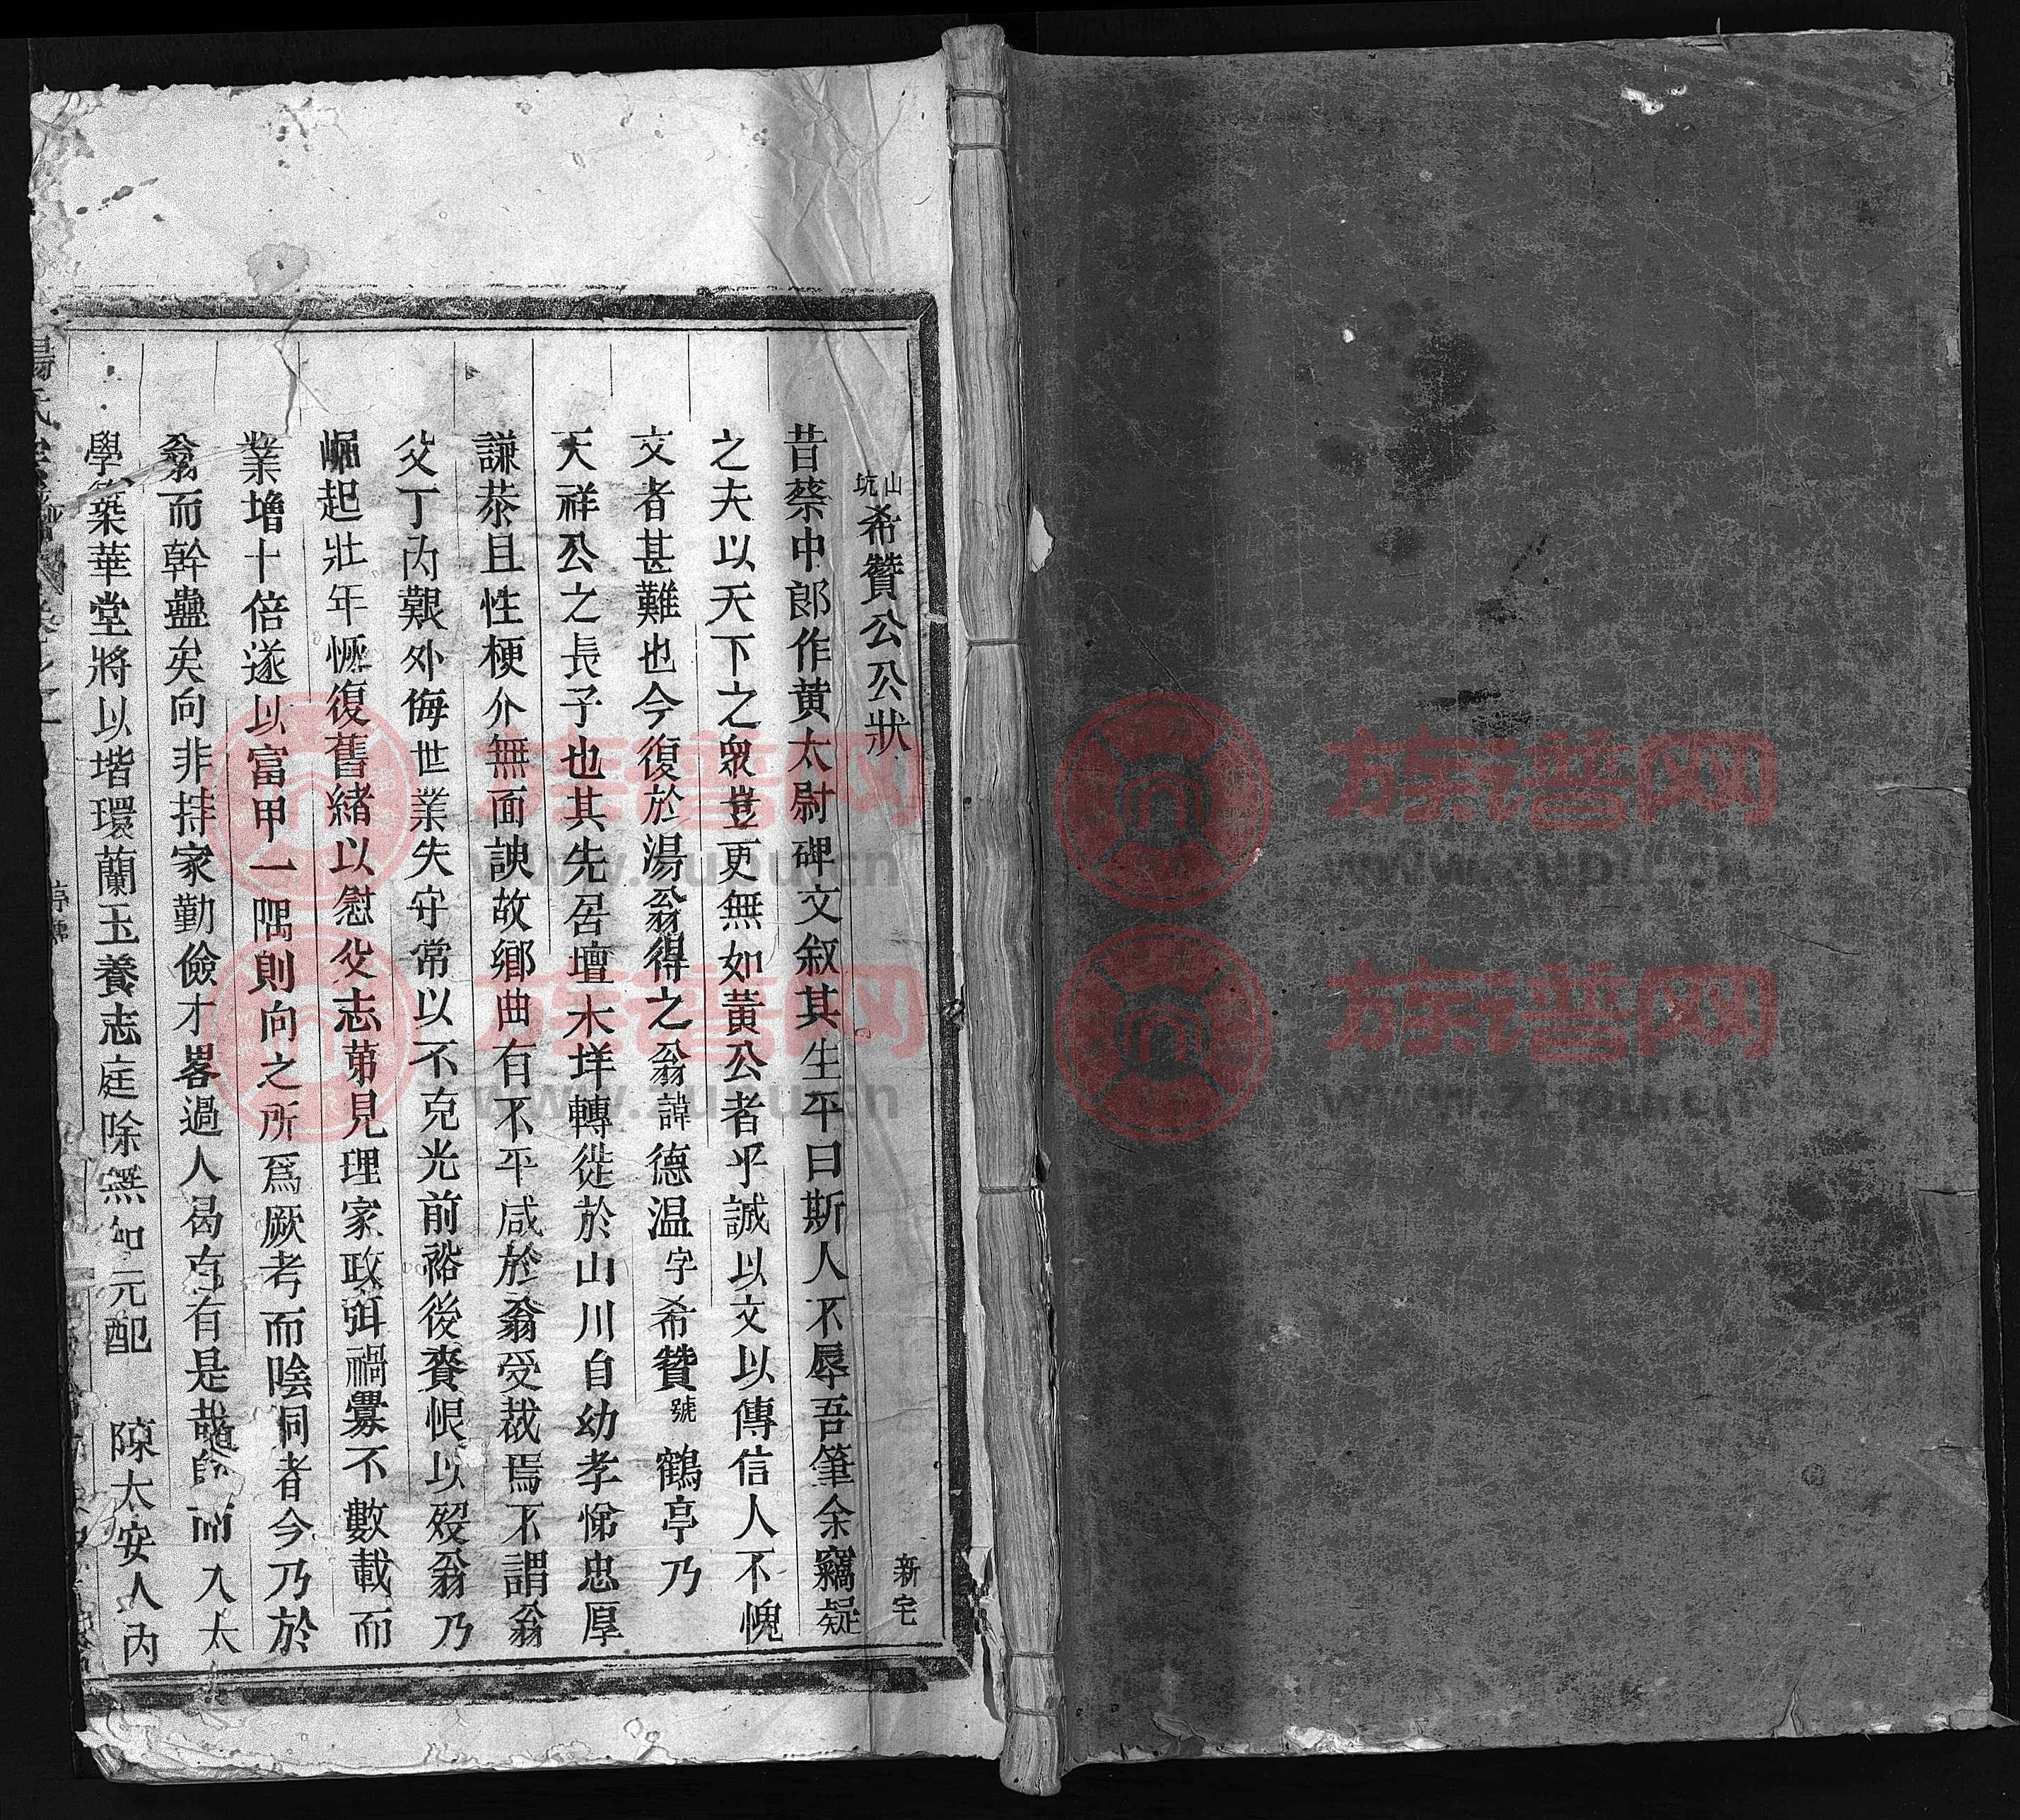 山坑希贊公公狀 新宅
昔蔡中郎作黄太尉碑文叙其生平曰斯人不辱吾筆余竊疑
之夫以天下之衆豈更無如黃公者乎誠以文以傳信人不愧
文者甚難也今復於湯翁得之翁諱德温字希贊號鶴亭乃
天祥公之長子也其先居壇木垟轉徙於山川自幼孝悌忠厚
謙恭且性梗介無面諛故鄉曲有不平咸於翁受裁焉不謂翁
父丁內艱外侮世業失守常以不克光前裕後賫恨以歿翁乃
崛起壯年恢復舊緒以慰父志苐見理家政弭禍釁不數載而
業增十倍遂以富甲一隅則向之所爲厥考而陰恫者今乃於
翁而幹蠱矣向非持家勤儉才畧過人曷克有是哉 而入太
學築華堂將以堦環蘭玉養志庭除無如元配 陳太安人內
湯氏宗譜 卷之
族谱网
www.zupu.cn
族谱网
www.zupu.cn
族谱网
www.zupu.cn
族谱网
www.zupu.cn